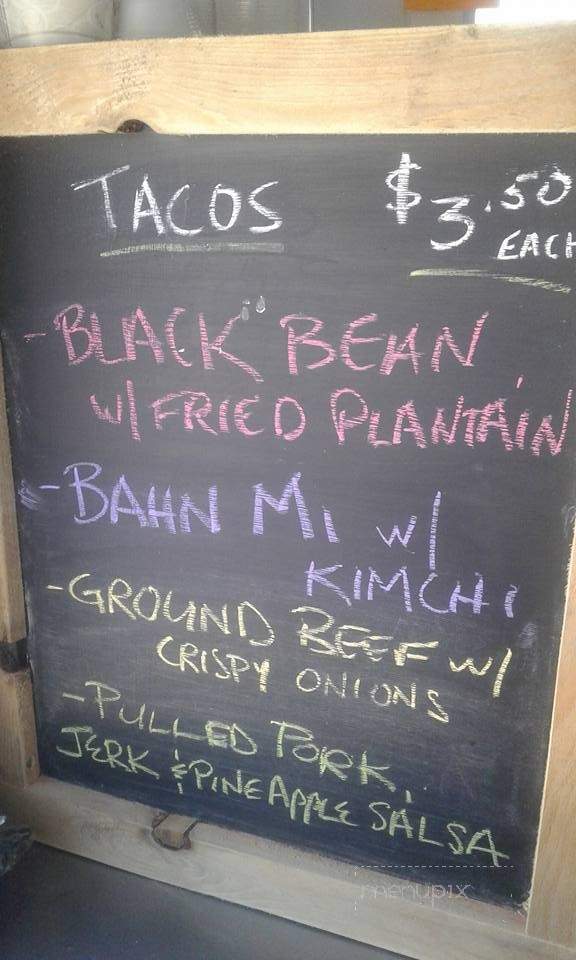 TACOS $3.50
EACH
- BLACK BEAN
W/ FRIED PLANTAIN
- BAHN MI W/
KIMCHI
- GROUND BEEF W/
CRISPY ONIONS
- PULLED PORK,
JERK & PINEAPPLE SALSA
menupix